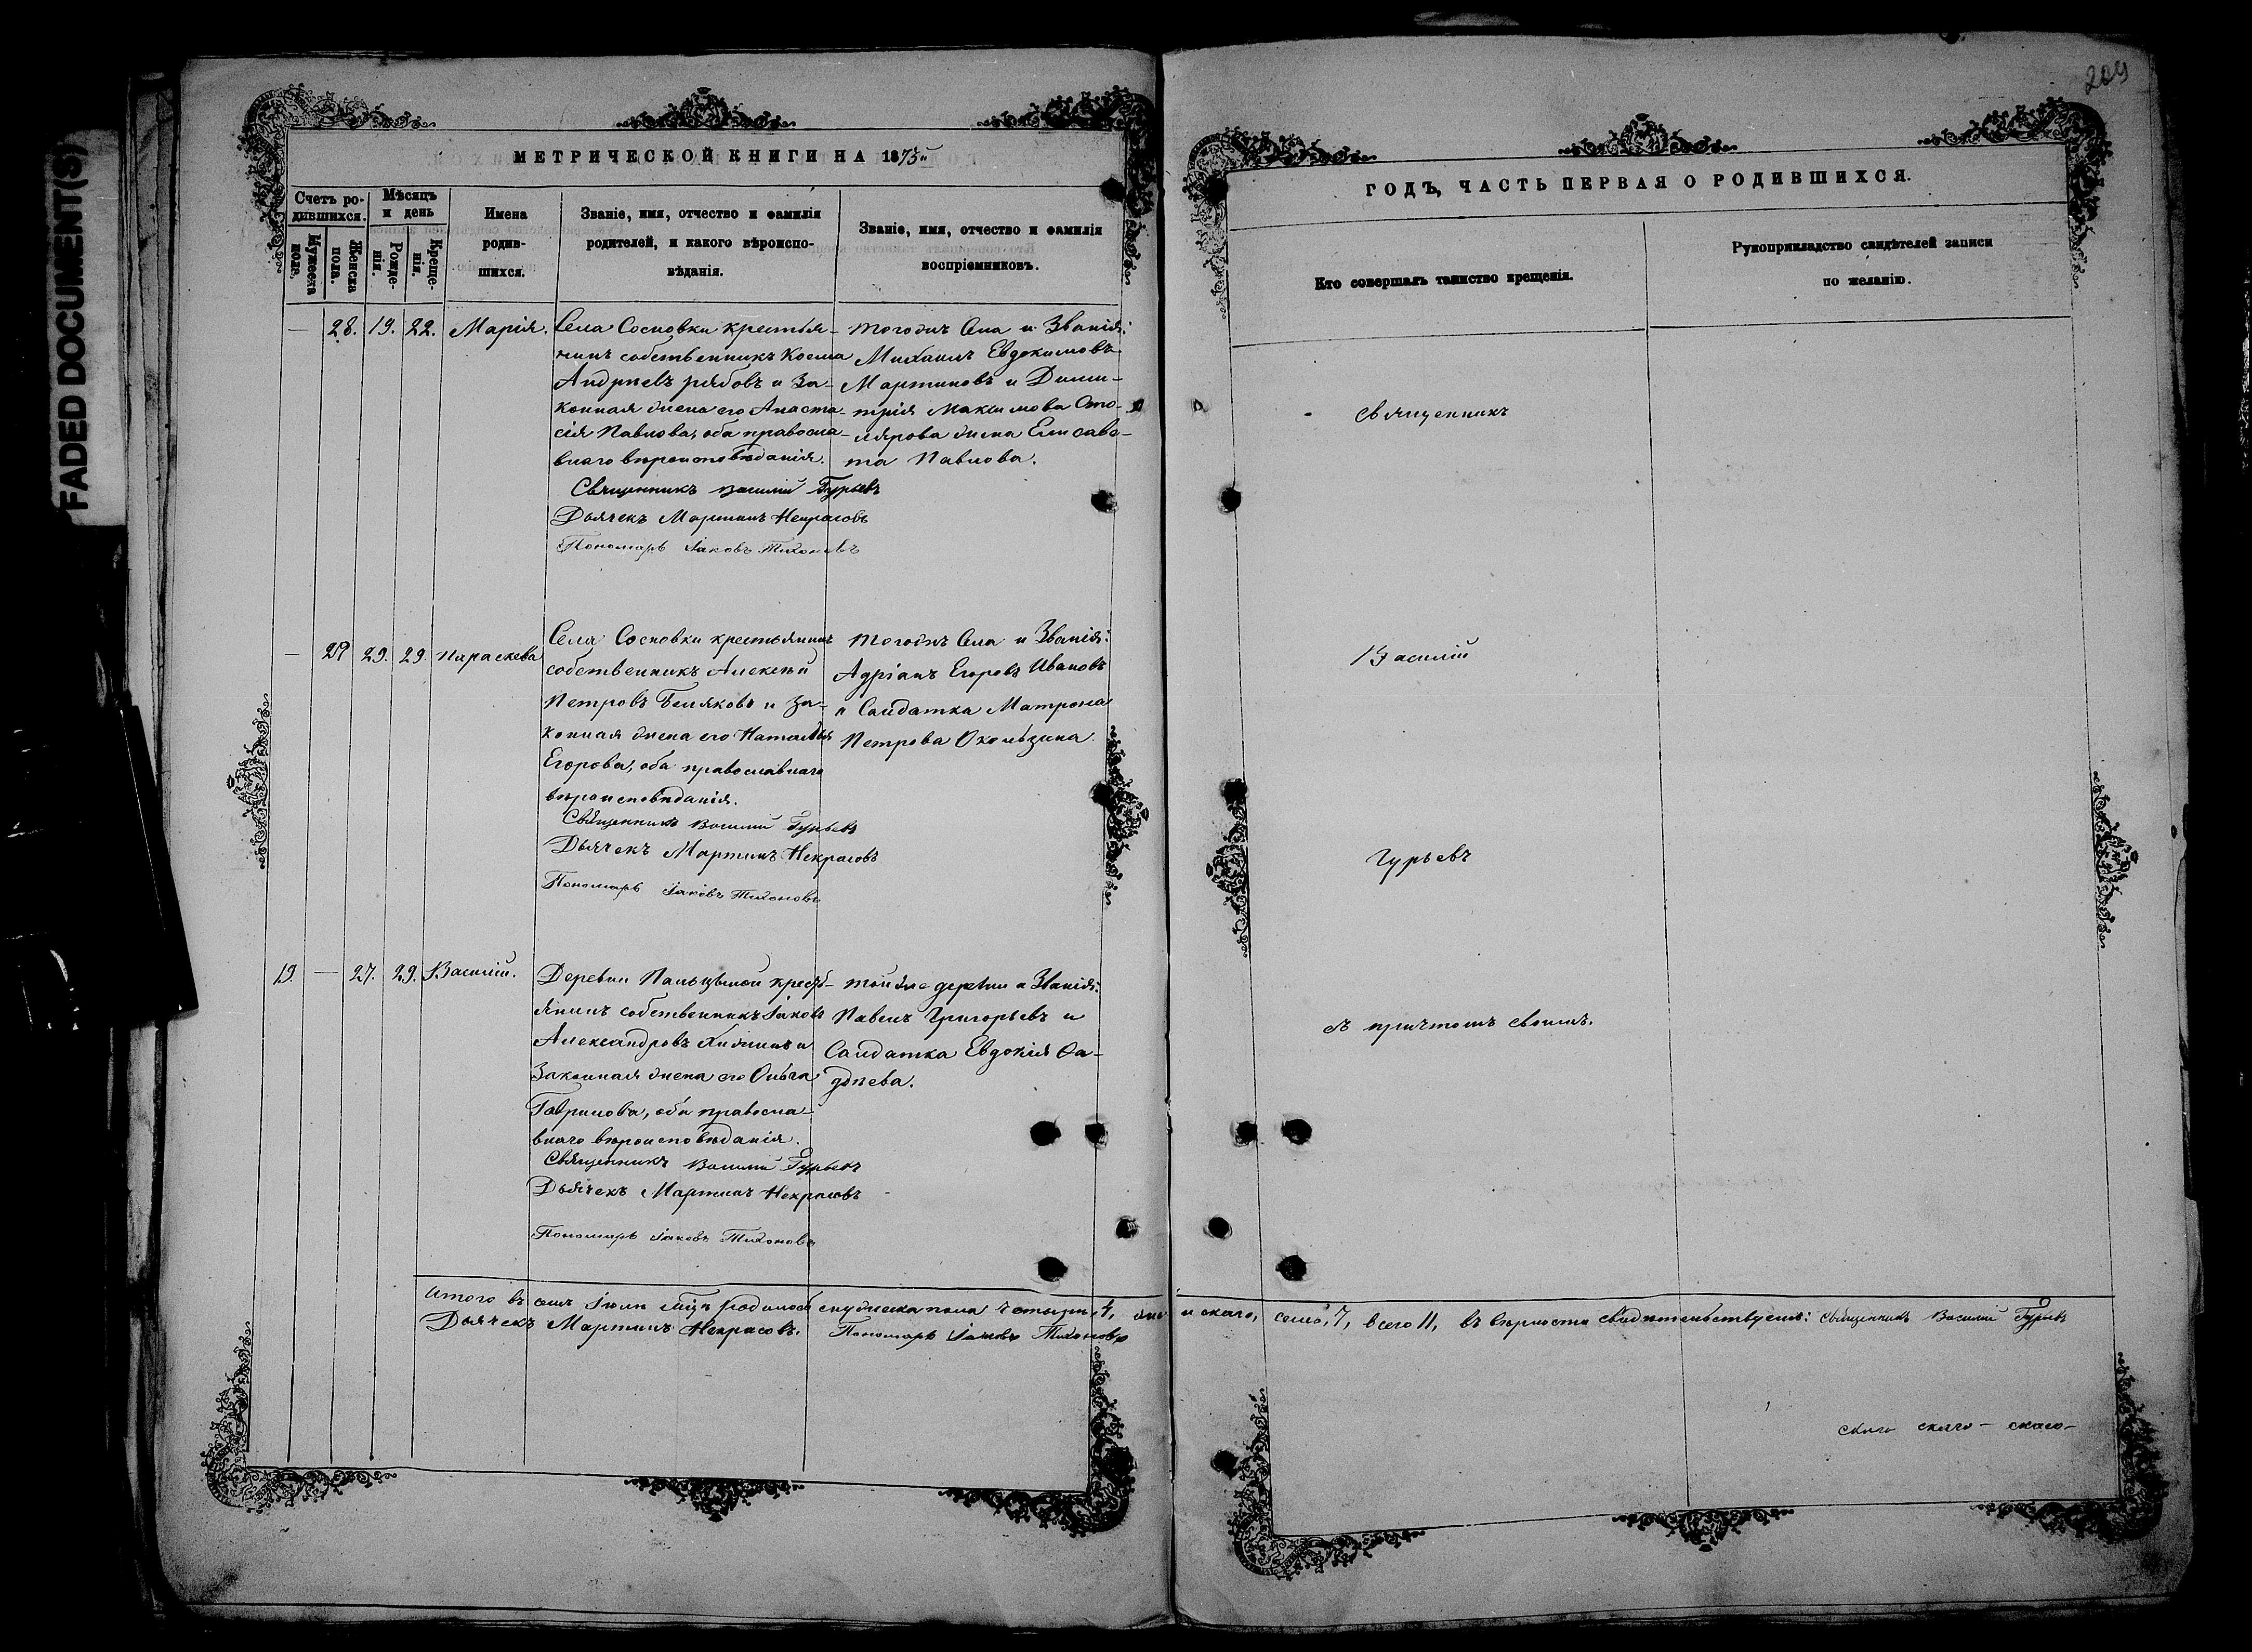 FADED DOCUMENT(S)
209
МЕТРИЧЕСКОЙ КНИГИ НА 1875й
Счетъ ро-
дившихся.
Мужеска
пола.
Женска
пола.
Мѣсяцъ
и день
Рожде-
нія.
Креще-
нія.
Имена
родив-
шихся.
Званіе, имя, отчество и фамилія
родителей, и какого вѣроиспо-
вѣданія.
Званіе, имя, отчество и фамилія
воспріемниковъ.
— 28. 19. 22. Марія.
Села Сосновки крестья-
нинъ собственникъ Косма
Андреевъ Рябовъ и за-
конная жена его Анаста-
сія Павлова, оба правосла-
внаго вѣроисповѣданія.
Священникъ Василій Гурьевъ
Дьячекъ Мартинъ Некрасовъ
Пономарь Іаковъ Тихоновъ
Тогожъ села и званія:
Михаилъ Евдокимовъ
Мартиновъ и Дими-
трія Максимова Сто-
лярова жена Елисаве-
та Павлова.
— 29 29. 29. Параскева
Села Сосновки крестьянинъ
собственникъ Алексѣй
Петровъ Беляковъ и за-
конная жена его Наталья
Егорова, оба православнаго
вѣроисповѣданія.
Священникъ Василій Гурьевъ
Дьячекъ Мартинъ Некрасовъ
Пономарь Іаковъ Тихоновъ
Тогожъ села и званія:
Адріанъ Егоровъ Ивановъ
и Салдатка Матрона
Петрова
19. — 27. 29. Василій.
Деревни крест-
янинъ собственникъ Іаковъ
Александровъ и
законная жена его Ольга
Гаврилова, оба правосла-
внаго вѣроисповѣданія.
Священникъ Василій Гурьевъ
Дьячекъ Мартинъ Некрасовъ
Пономарь Іаковъ Тихоновъ
Тойже деревни и званія:
Павелъ Григорьевъ и
Салдатка Евдокія Фа-
дѣева.
Итого въ семъ Іюлѣ родилось мужеска пола четыре, 4, женскаго, семь, 7, всего 11, въ вѣрности свидѣтельствуемъ: Священникъ Василій Гурьевъ
Дьячекъ Мартинъ Некрасовъ. Пономарь Іаковъ Тихоновъ
ГОДЪ, ЧАСТЬ ПЕРВАЯ О РОДИВШИХСЯ.
Кто совершалъ таинство крещенія.
Рукоприкладство свидѣтелей записи
по желанію.
Священникъ
Василій
Гурьевъ
съ причтомъ своимъ.
скаго скаго — скаго —